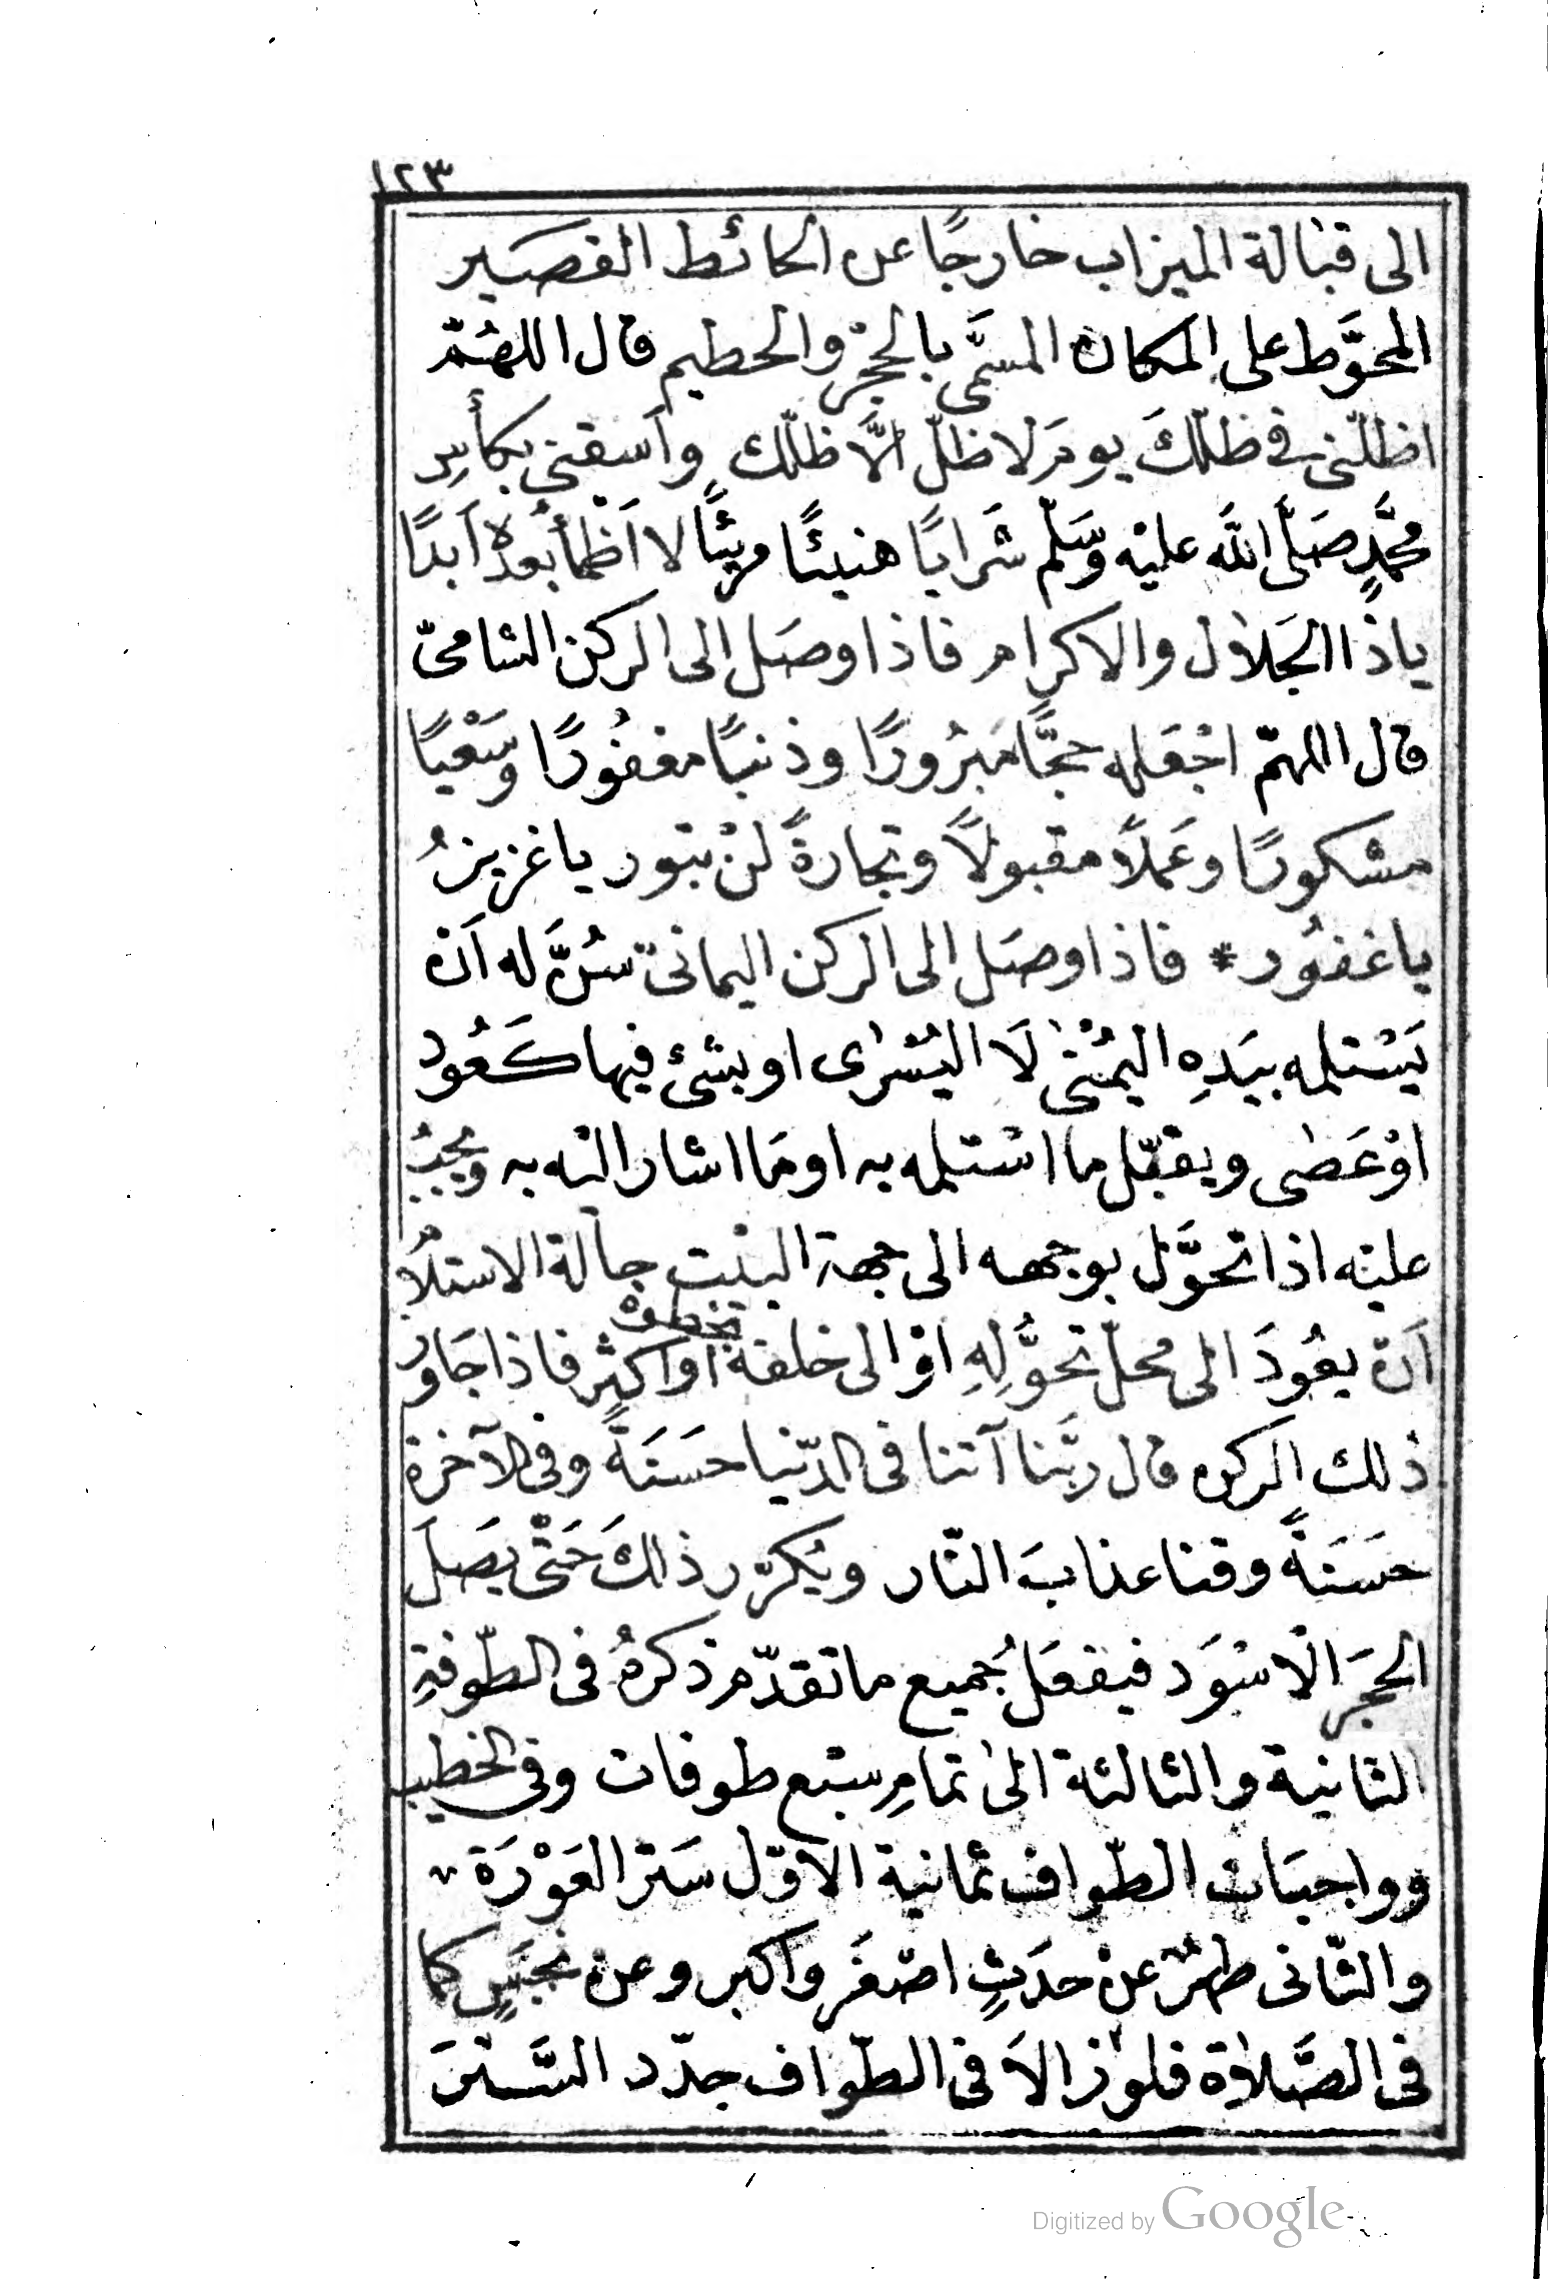 ١٢٣
الى قبالة الميزاب خارجًا عن الحائط القصير
المحوَّط على المكان المسمَّى بالحِجْر والحطيم قال اللهُمّ
اظلّنى فى ظلّك يوم لا ظلّ الَّا ظلّك واَسقِنى بكأسِ
محمَّدٍ صَلَّى الله عليْه وَسَلّم شَرابًا هنيئًا مريئًا لا اَظمأ بعْدهُ اَبدًا
ياذا الجَلال والاكرام فاذا وصَل الى الركن الشامىّ
قال اللهمّ اجْعَله حجًّا مَبْرُورًا وذنبًا مغفُورًا وسَعْيًا
مشكورًا وعَملاً مقبولاً وتجارةً لنْ تبور ياعزيزُ
ياغفُور * فاذا وصَل الى الركن اليمانىّ سُنَّ له اَنْ
يَسْتلمه بيَدِهِ اليُمْنٰى لَا اليُسْرٰى او بشئ فيها كَعُود
اوْعَصٰى ويقبّل ما اسْتلمه به او مَا اشار اليْه به ويجبُ
عليْه اذا تحوَّل بوجهه الى جهة البيْت حالة الاستلام
اَنْ يعُودَ الى محلّ تحوُّلِهِ اوْ الى خلفه بخطوة او اكثر فاذا جَاوز
ذلك الركن قال ربَّنا آتنا فى الدّنيا حسَنَةً وفى الآخرة
حسَنَةً وقنا عذابَ النّار ويُكرّر ذلكَ حَتّٰى يصَلَ
الحجَرَ الْاسْوَد فيفعَلُ جُميع ما تقدّم ذكرهُ فى الطّوفةِ
الثانية والثالثة الىٰ تمامِ سبْع طوفات وفى الخطيب
وواجبَات الطّواف ثمانية الاوّل سَتر العَوْرَة
والثّانى طهْرٌ عنْ حدَثٍ اصْغَر واكبر وعن نجَسٍ كما
فى الصَّلاٰة فلوْ زالاَ فى الطّواف جدّد السَّتْرَ
Digitized by Google